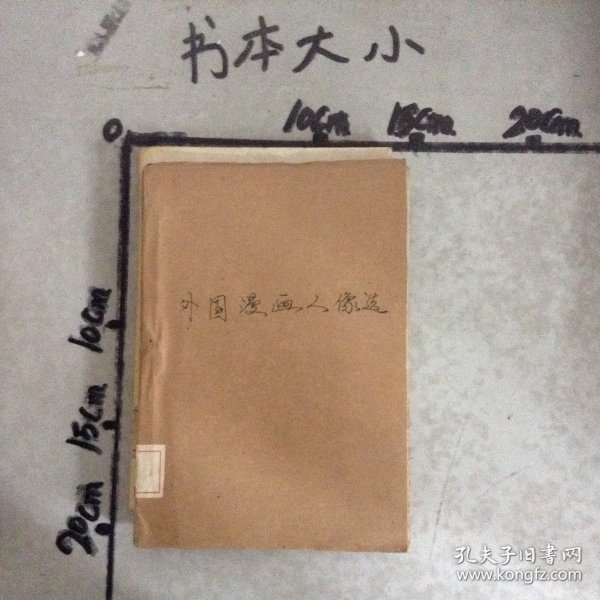 书本大小
0 10cm 15cm 20cm
10cm
15cm
20cm
外国漫画人像选
孔夫子旧书网
www.kongfz.com